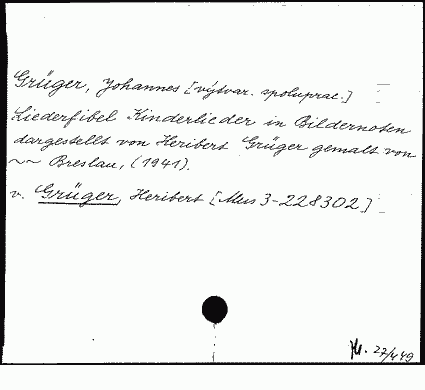 Grüger, Johannes [výtvar. spoluprac.]
Liederfibel Kinderlieder in Bildernoten
dargestellt von Heribert Grüger gemalt von
~~ Breslau, (1941).
v. Grüger, Heribert [Mus 3-228302]
27/449